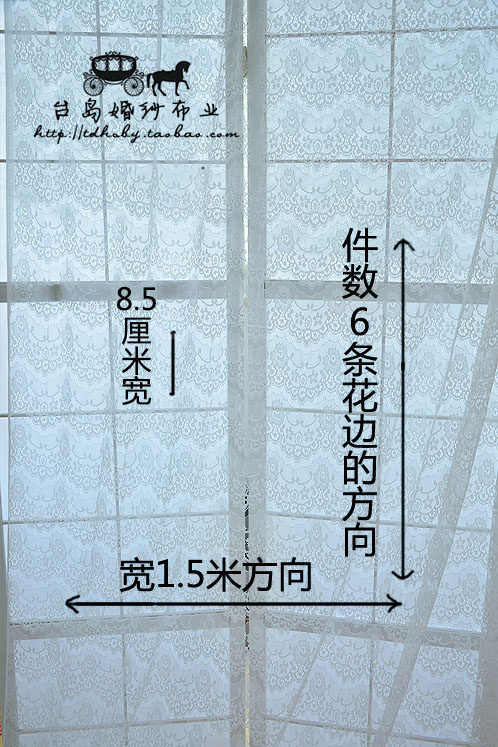 台岛婚纱布业
http://tdhsby.taobao.com/
8.5厘米宽
件数6条花边的方向
宽1.5米方向